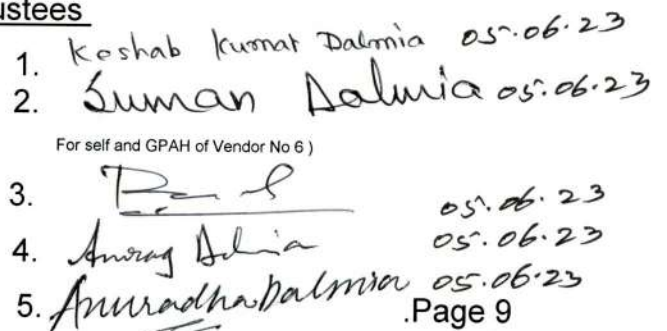 ustees
1. Keshab Kumar Dalmia 05.06.23
2. Suman Dalmia 05.06.23
For self and GPAH of Vendor No 6 )
3. 05.06.23
4. Anurag Dalmia 05.06.23
5. Anuradha Dalmia 05.06.23
.Page 9